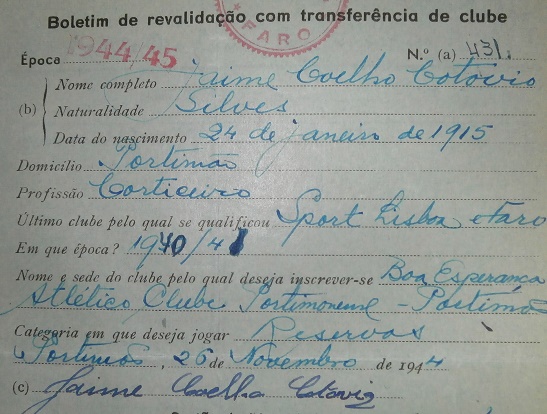 Boletim de revalidação com transferência de clube
FARO
Época 1944/45 N.º (a) 431.
Nome completo Jaime Coelho Cotovio
(b) Naturalidade Silves
Data do nascimento 24 de janeiro de 1915
Domicílio Portimão
Profissão Corticeiro
Último clube pelo qual se qualificou Sport Lisboa e Faro
Em que época? 1940/41
Nome e sede do clube pelo qual deseja inscrever-se Boa Esperança
Atlético Clube Portimonense - Portimão
Categoria em que deseja jogar Reservas
Portimão, 26 de Novembro de 1944
(c) Jaime Coelho Cotovio